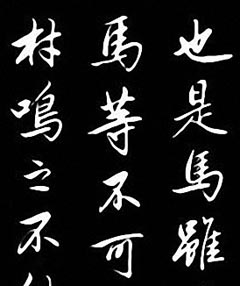 也是馬雖
馬等不可
材鳴之不